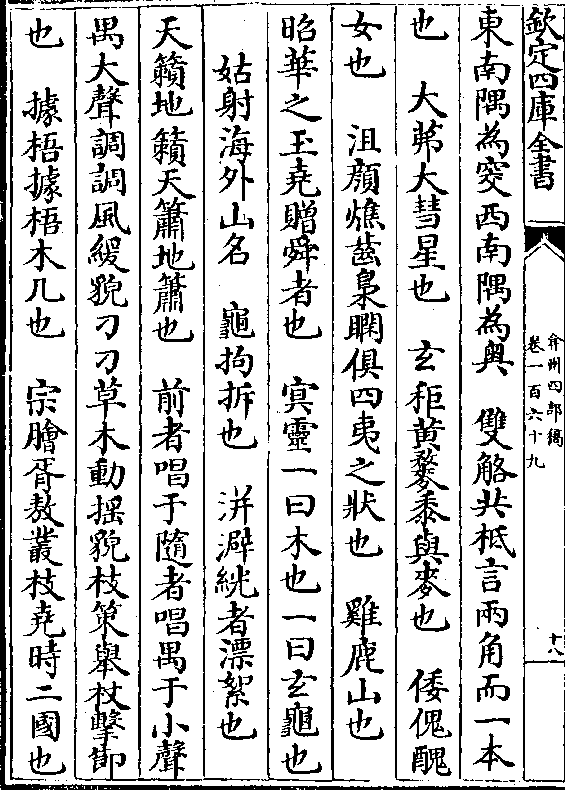 欽定四庫全書
弇州四部稿
卷一百六十九
十八
東南隅為窔西南隅為奥　雙觡共柢言兩角而一本
也　大茀大彗星也　玄秬黄䵃黍與麥也　倭傀醜
女也　沮顔燋齒梟瞷俱四夷之狀也　雞鹿山也
昭華之玉堯贈舜者也　冥靈一曰木也一曰玄龜也
姑射海外山名　龜拘拆也　洴澼絖者漂絮也
天籟地籟天簫地簫也　前者唱于隨者唱喁于小聲
喁大聲調調風緩貌刁刁草木動揺貌枝策舉杖擊節
也　據梧據梧木几也　宗膾胥敖叢枝堯時二國也